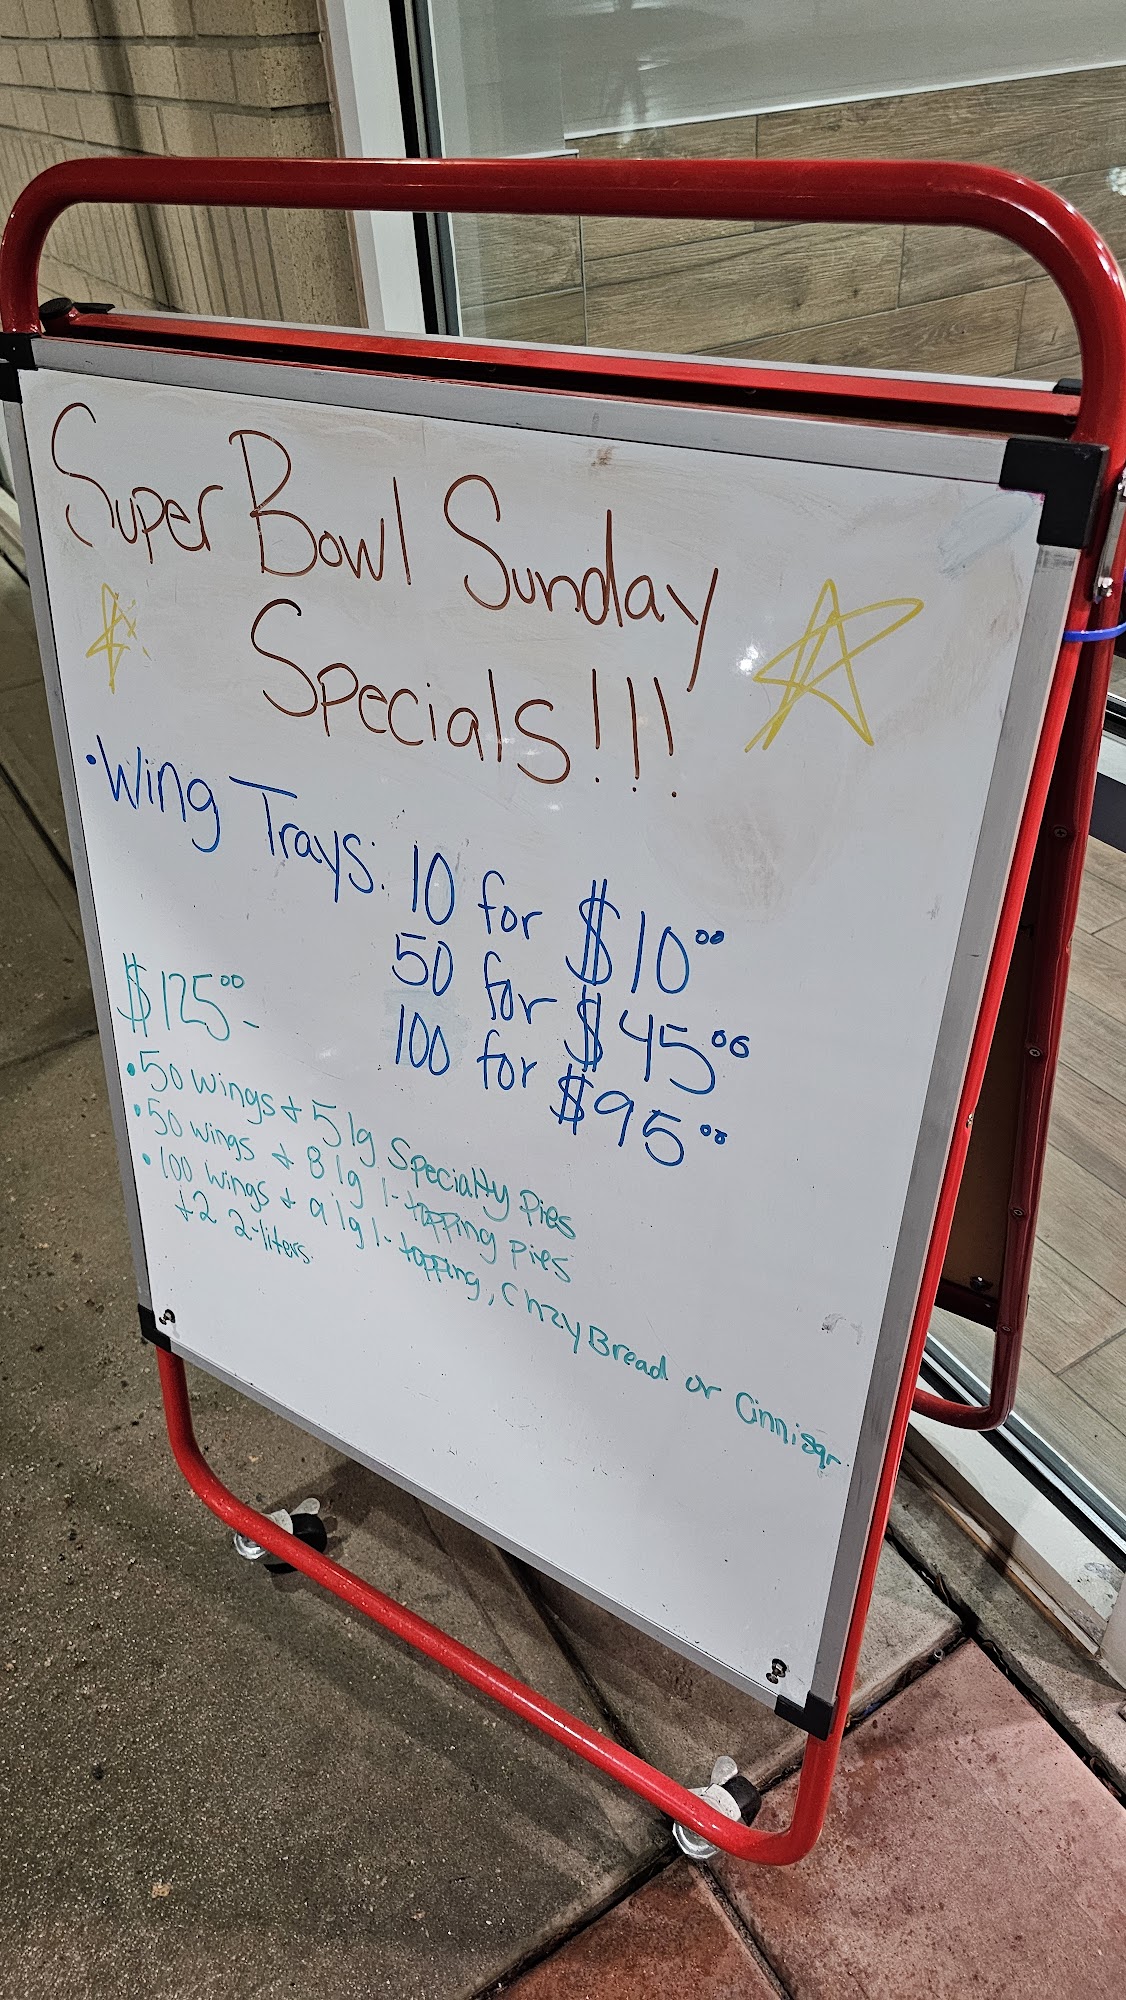 Super Bowl Sunday
Specials!!!
• Wing Trays: 10 for $10.00
50 for $45.00
100 for $95.00
$125.00 -
• 50 wings + 5 lg Specialty Pies
• 50 wings + 8 lg 1-topping pies
• 100 wings + a lg 1-topping, Crzy Bread or Cinni
+ 2 2-liters.